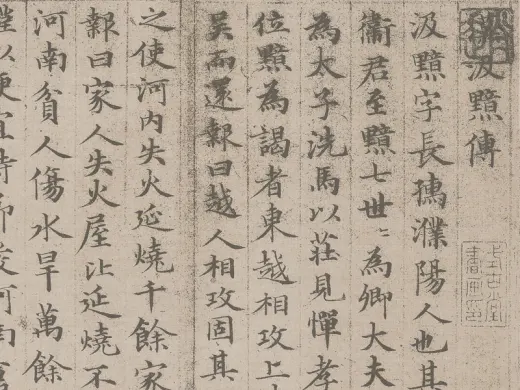 汲黯傳
汲黯字長孺濮陽人也其
衞君至黯七世〻為卿大夫
為太子洗馬以莊見憚孝
位黯為謁者東越相攻上
吴而還報曰越人相攻固其
之使河内失火延燒千餘家
報曰家人失火屋比延燒不
河南貧人傷水旱萬餘
謹以便宜持節發河南倉